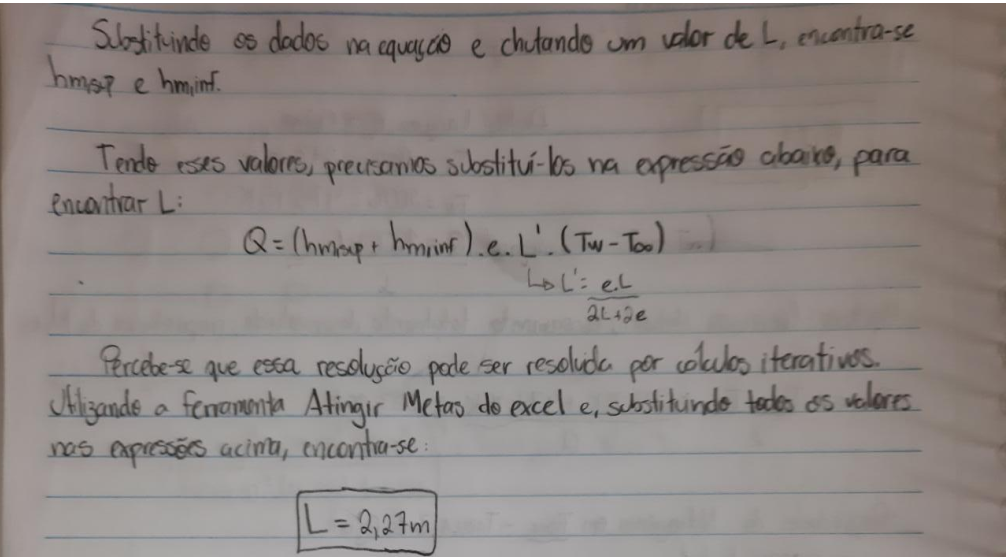 Substituindo os dados na equação e chutando um valor de L, encontra-se
hm,sup e hm,inf.
Tendo esses valores, precisamos substituí-los na expressão abaixo, para
encontrar L:
Q = (hm,sup + hm,inf).e.L'.(Tw - T∞)
↳ L' = e.L
2L+2e
Percebe-se que essa resolução pode ser resolvida por cálculos iterativos.
Utilizando a ferramenta Atingir Metas do excel e, substituindo todos os valores
nas expressões acima, encontra-se:
L = 2,27m